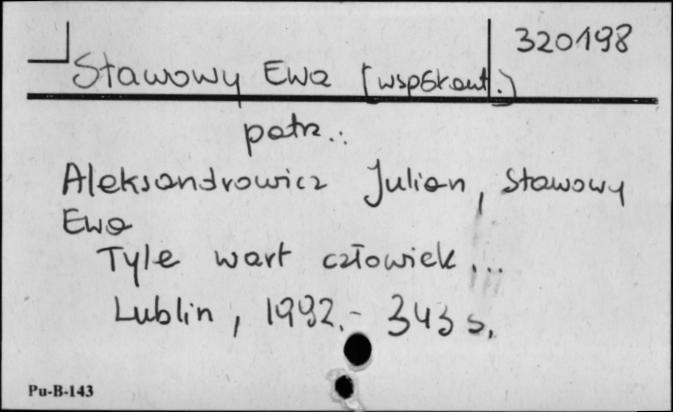 320198
Stawowy Ewa [współaut.]
patrz.:
Aleksandrowicz Julian, Stawowy
Ewa
Tyle wart człowiek...
Lublin, 1992.- 343 s.
Pu-B-143